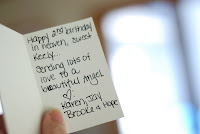 Happy 2nd birthday
in heaven, sweet
Keely...
Sending lots of
love to a
beautiful Angel
♡.
Karen, Jay
Brooke & Hope